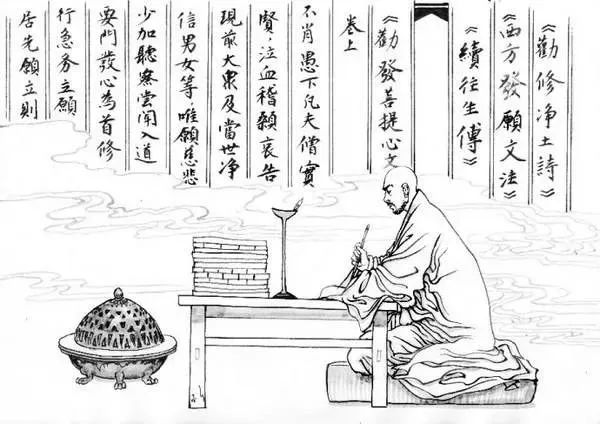 《勸修净土詩》
《西方發願文法》
《續往生傳》
《勸發菩提心文》
卷上
不肖愚下凡夫僧實
賢，泣血稽顙哀告
現前大衆及當世净
信男女等，唯願慈悲
少加聽察嘗聞入道
要門發心為首修
行急务立願
居先願立則